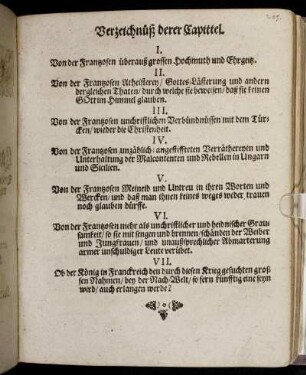 Verzeichnüß derer Capittel.
I.
Von der Frantzosen überauß grossen Hochmuth und Ehrgeitz.
II.
Von der Frantzosen Atheisterey / Gottes-Lästerung und andern
dergleichen Thaten / durch welche sie beweisen / daß sie keinen
GOtt im Himmel glauben.
III.
Von der Frantzosen unchristlichen Verbündnüssen mit dem Tür-
cken / wieder die Christenheit.
IV.
Von der Frantzosen unzählich-angestiffteten Verräthereyen und
Unterhaltung der Malcontenten und Rebellen in Ungarn
und Sicilien.
V.
Von der Frantzosen Meineid und Untreu in ihren Worten und
Wercken / und daß man ihnen keines weges weder trauen
noch glauben dürffe.
VI.
Von der Frantzosen mehr als unchristlicher und heidnischer Grau-
samkeit / so sie mit sengen und brennen / schänden der Weiber
und Jungfrauen / und unaußsprechlicher Abmarterung
armer unschuldiger Leute verübet.
VII.
Ob der König in Franckreich den durch diesen Krieg gesuchten gros-
sen Nahmen / bey der Nach-Welt / so fern künfftig eine seyn
wird / auch erlangen werde?